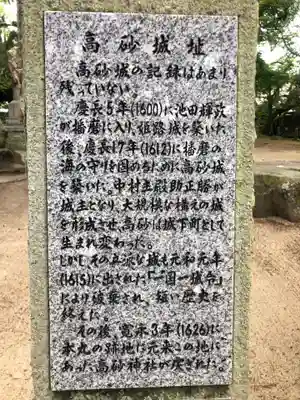 高砂城址
高砂城の記録はあまり
残っていない。
慶長5年(1600)に池田輝政
が播磨に入り、姫路城を築いた
後、慶長17年(1612)に播磨の
海の守りを固めるために高砂城
を築いた。中村主殿助正勝が
城主となり、大規模な構えの城
を形成させ、高砂は城下町として
生まれ変わった。
しかし その立派な城も元和元年
(1615)に出された「一国一城令」
により破棄され、短い歴史を
終えた。
その後、寛永3年(1626)に
本丸の跡地に元来この地に
あった高砂神社が戻された。